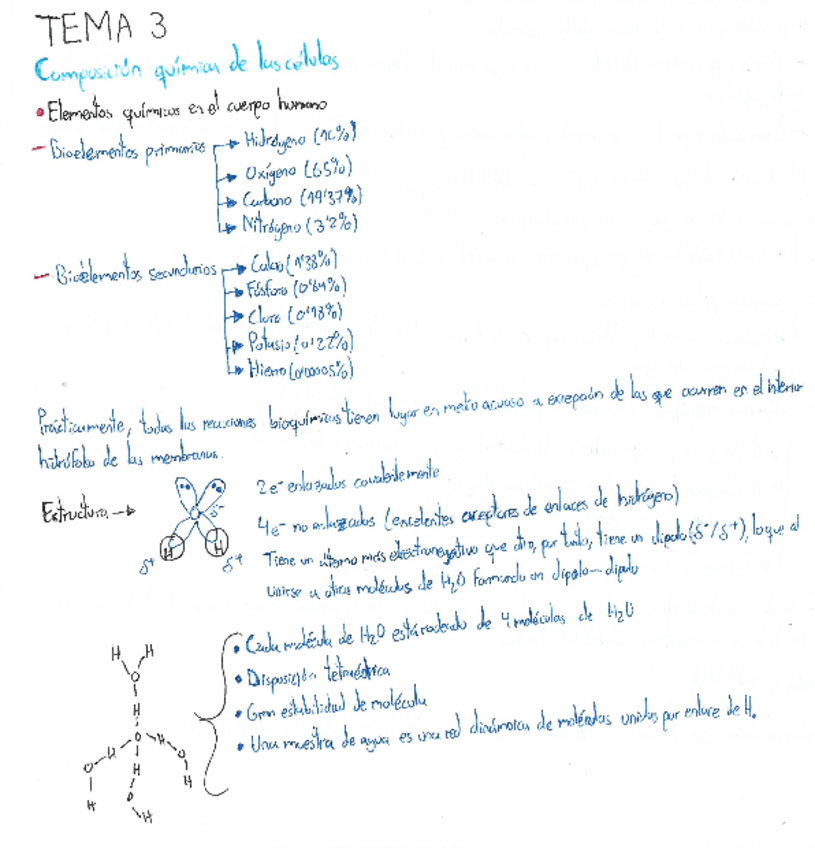 TEMA 3
Composición química de las células
• Elementos químicos en el cuerpo humano
- Bioelementos primarios
→ Hidrógeno (10%)
→ Oxígeno (65%)
→ Carbono (19'37%)
→ Nitrógeno (3'2%)
- Bioelementos secundarios
→ Calcio (1'38%)
→ Fósforo (0'64%)
→ Cloro (0'18%)
→ Potasio (0'22%)
→ Hierro (0'00005%)
Prácticamente, todas las reacciones bioquímicas tienen lugar en metio acuoso a excepción de las que ocurren en el interior
hidrófobo de las membranas.
Estructura →
2e⁻ enlazados covalentemente
4e⁻ no enlazados (excelentes aceptores de enlaces de hidrógeno)
Tiene un átomo más electronegativo que otro, por tanto, tiene un dipolo (δ⁻/δ⁺), lo que al
unirse a otras moléculas de H₂O formando un dipolo-dipolo
δ⁻
H H
δ⁺ δ⁺
• Cada molécula de H₂O está rodeada de 4 moléculas de H₂O
• Disposición tetraédrica
• Gran estabilidad de molécula
• Una muestra de agua es una red dinámica de moléculas unidas por enlace de H.
H H
O
H
H O H
O H O
H O H
H